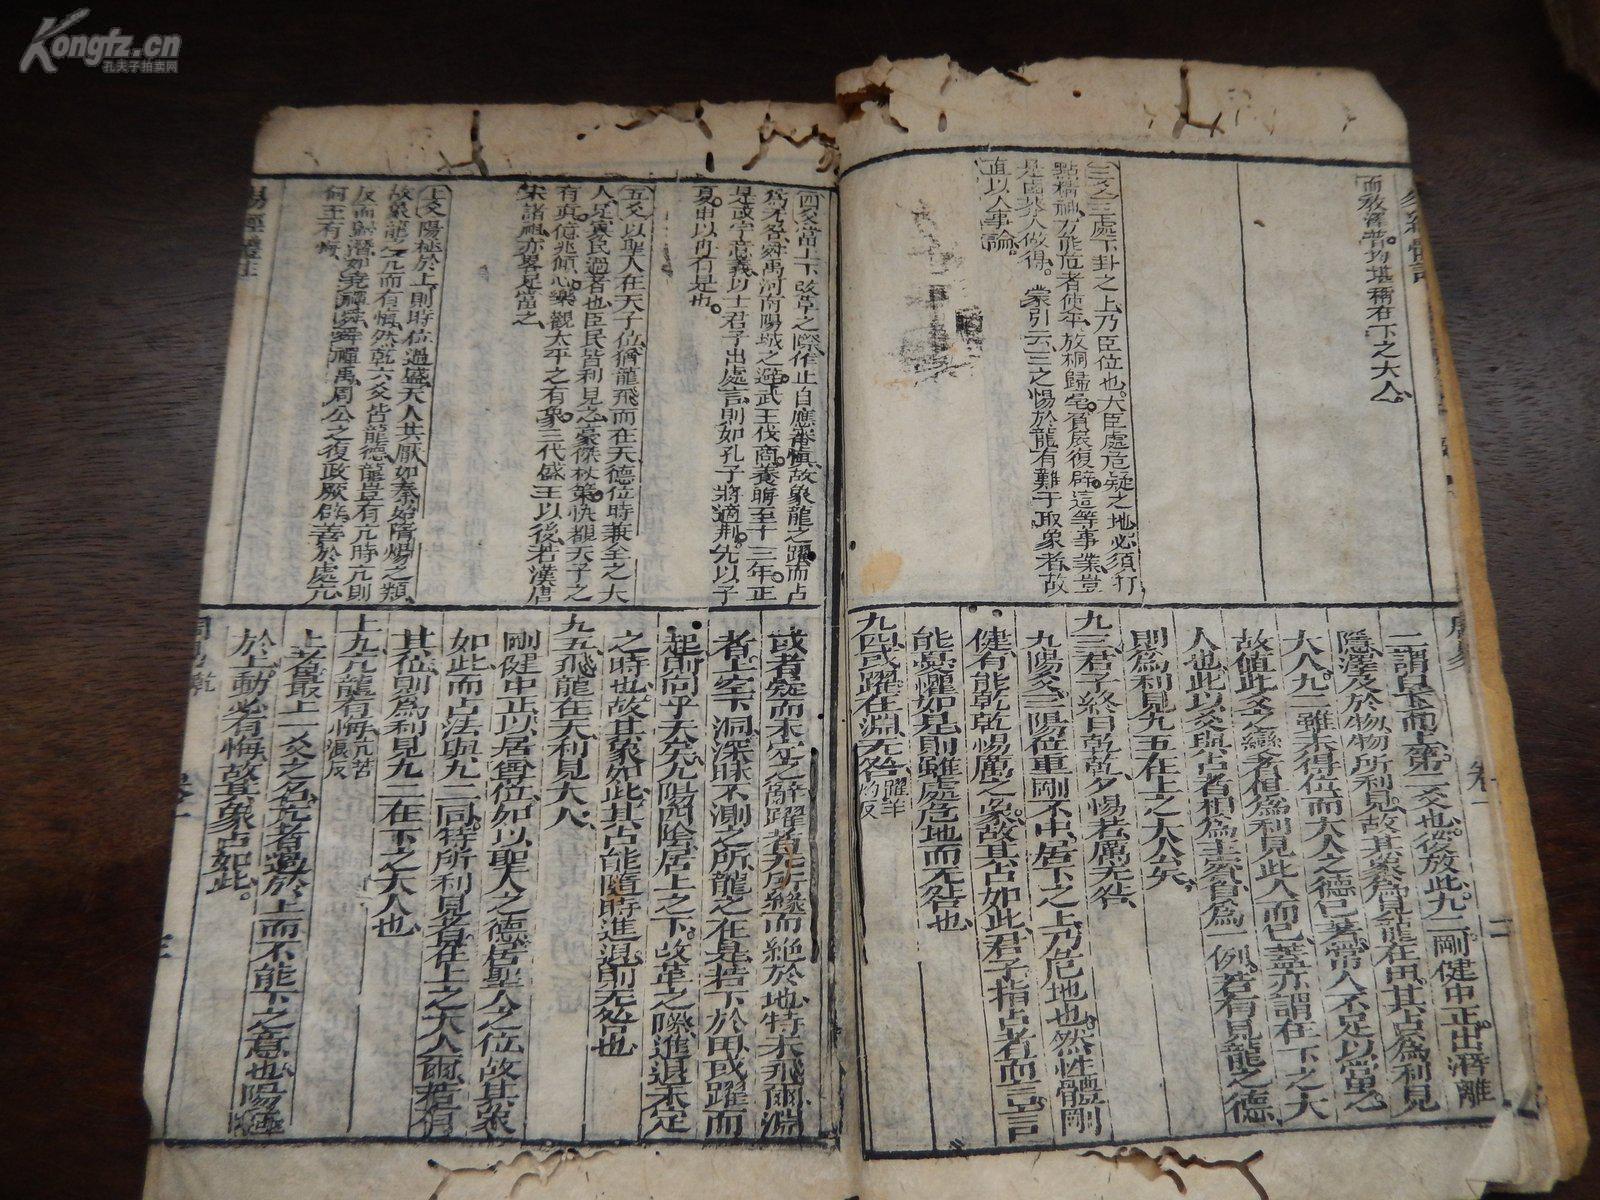 Kongfz.cn
孔夫子拍卖网
而敎澤普均堪稱在下之大人
三爻三處下卦之上乃臣位也大臣處危疑之地必須打
點精神方能危者使平放桐歸亳負扆復辟這等事業豈
是庸恭人做得蒙引云三之惕於龍有難于取象者故
直以人事論
二謂自下而上第二爻也後放此九二剛健中正出潛離
隱澤及於物物所利見故其象爲見龍在田其占爲利見
大人九二雖未得位而大人之德已著常人不足以當之
故値此爻之變者但爲利見此人而已蓋亦謂在下之大
人也此以爻與占者相爲主賓自爲一例若有見龍之德
則爲利見九五在上之大人矣
九三君子終日乾乾夕惕若厲无咎
九陽爻三陽位重剛不中居下之上乃危地也然性體剛
健有能乾乾惕厲之象故其占如此君子指占者而言言
能憂懼如是則雖處危地而无咎也
九四或躍在淵无咎躍羊灼反
四爻當上下改革之際作止自應審愼故象龍之躍而占
爲无咎舜禹河南陽城之避武王伐商養晦至十三年正
是或字意義以士君子出處言則如孔子將適荆先以子
夏申以冉有是也
五爻以聖人在天子位猶龍飛而在天德位時兼全之大
人足寡民過者也臣民皆利見之豪傑杖策快覩天子之
有眞億兆傾心樂觀太平之有象三代盛王以後若漢唐
宋諸祖亦畧足當之
上爻陽極於上則時位過盛天人共厭如秦始隋煬之類
故象龍之亢而有悔然乾六爻皆龍德龍豈有亢時亢則
反而歸潛如堯禪舜舜禪禹周公之復政厥辟善於處亢
何王有悔
或者疑而未定之辭躍者无所緣而絶於地特未飛爾淵
者上空下洞深昧不測之所龍之在是若下於田或躍而
起則向乎天矣九陽四陰居上之下改革之際進退未定
之時也故其象如此其占能隨時進退則无咎也
九五飛龍在天利見大人
剛健中正以居尊位如以聖人之德居聖人之位故其象
如此而占法與九二同特所利見者在上之大人爾若有
其位則爲利見九二在下之大人也
上九亢龍有悔亢苦浪反
上者最上一爻之名亢者過於上而不能下之意也陽極
於上動必有悔故其象占如此